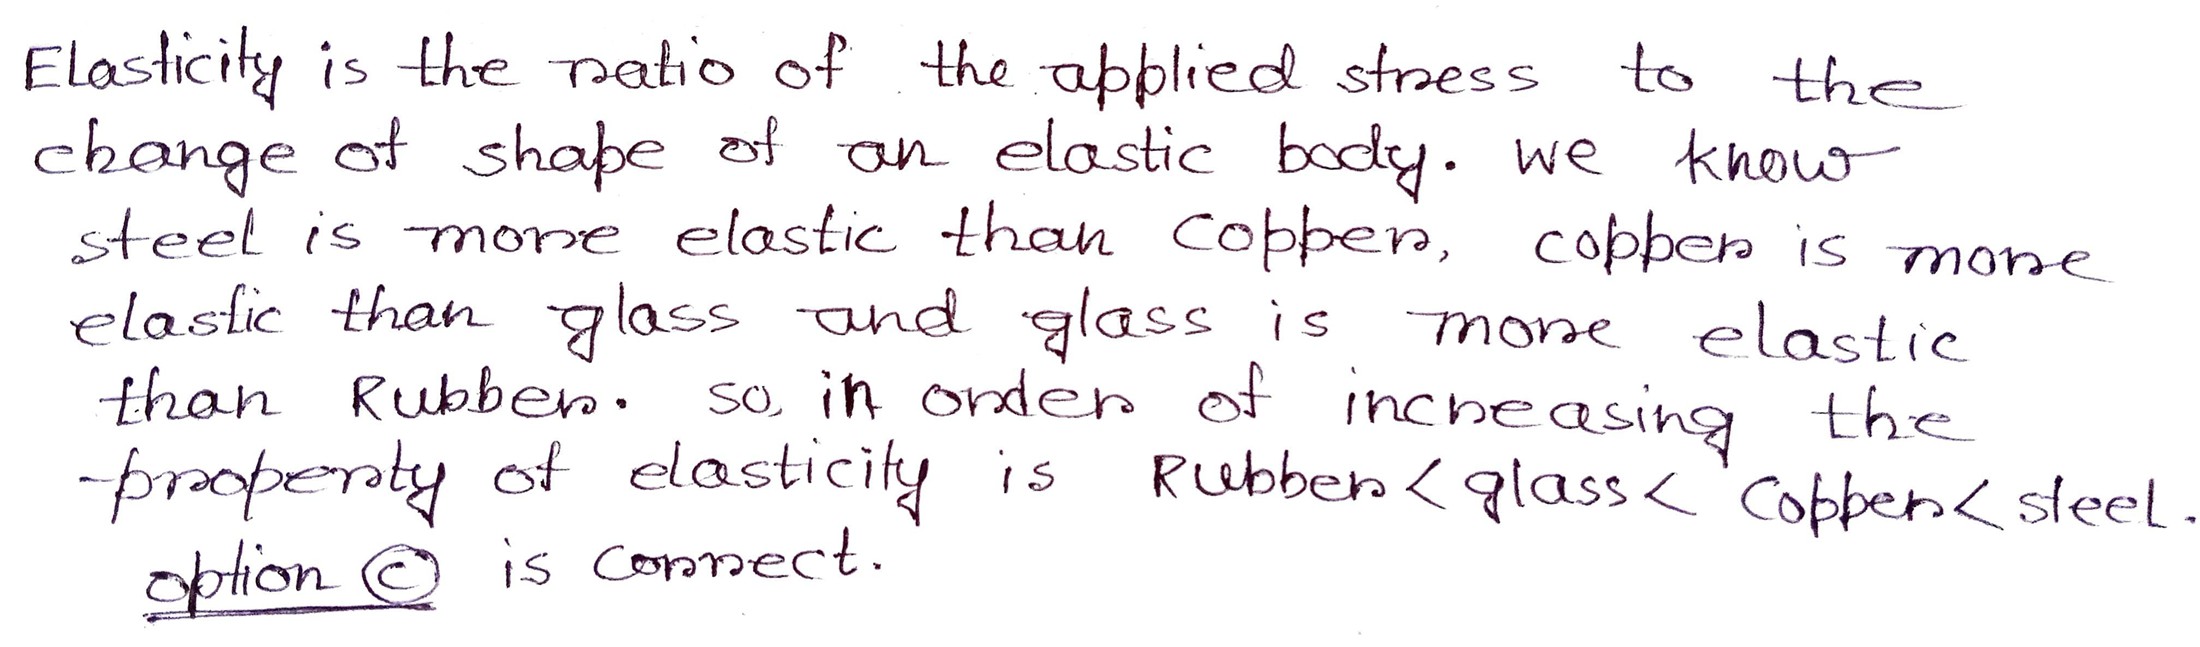 Elasticity is the ratio of the applied stress to the
change of shape of an elastic body. we know
steel is more elastic than Copper, copper is more
elastic than glass and glass is more elastic
than Rubber. so, in order of increasing the
property of elasticity is Rubber < glass < Copper < steel.
option © is correct.